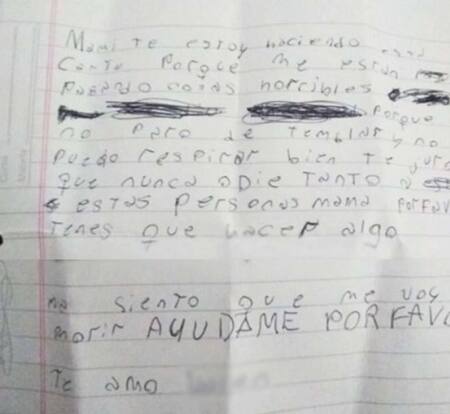 Mami Te estoy haciendo esta
Carta Porque me estan
Pasando cosas horribles
Porque
no Paro de Temblar y no
Puedo respirar bien Te juro
que nunca odie Tanto a
estas Personas mama PorFav
Tenes que hacer algo
me siento que me voy
morir AYUDAME POR FAVO
Te amo